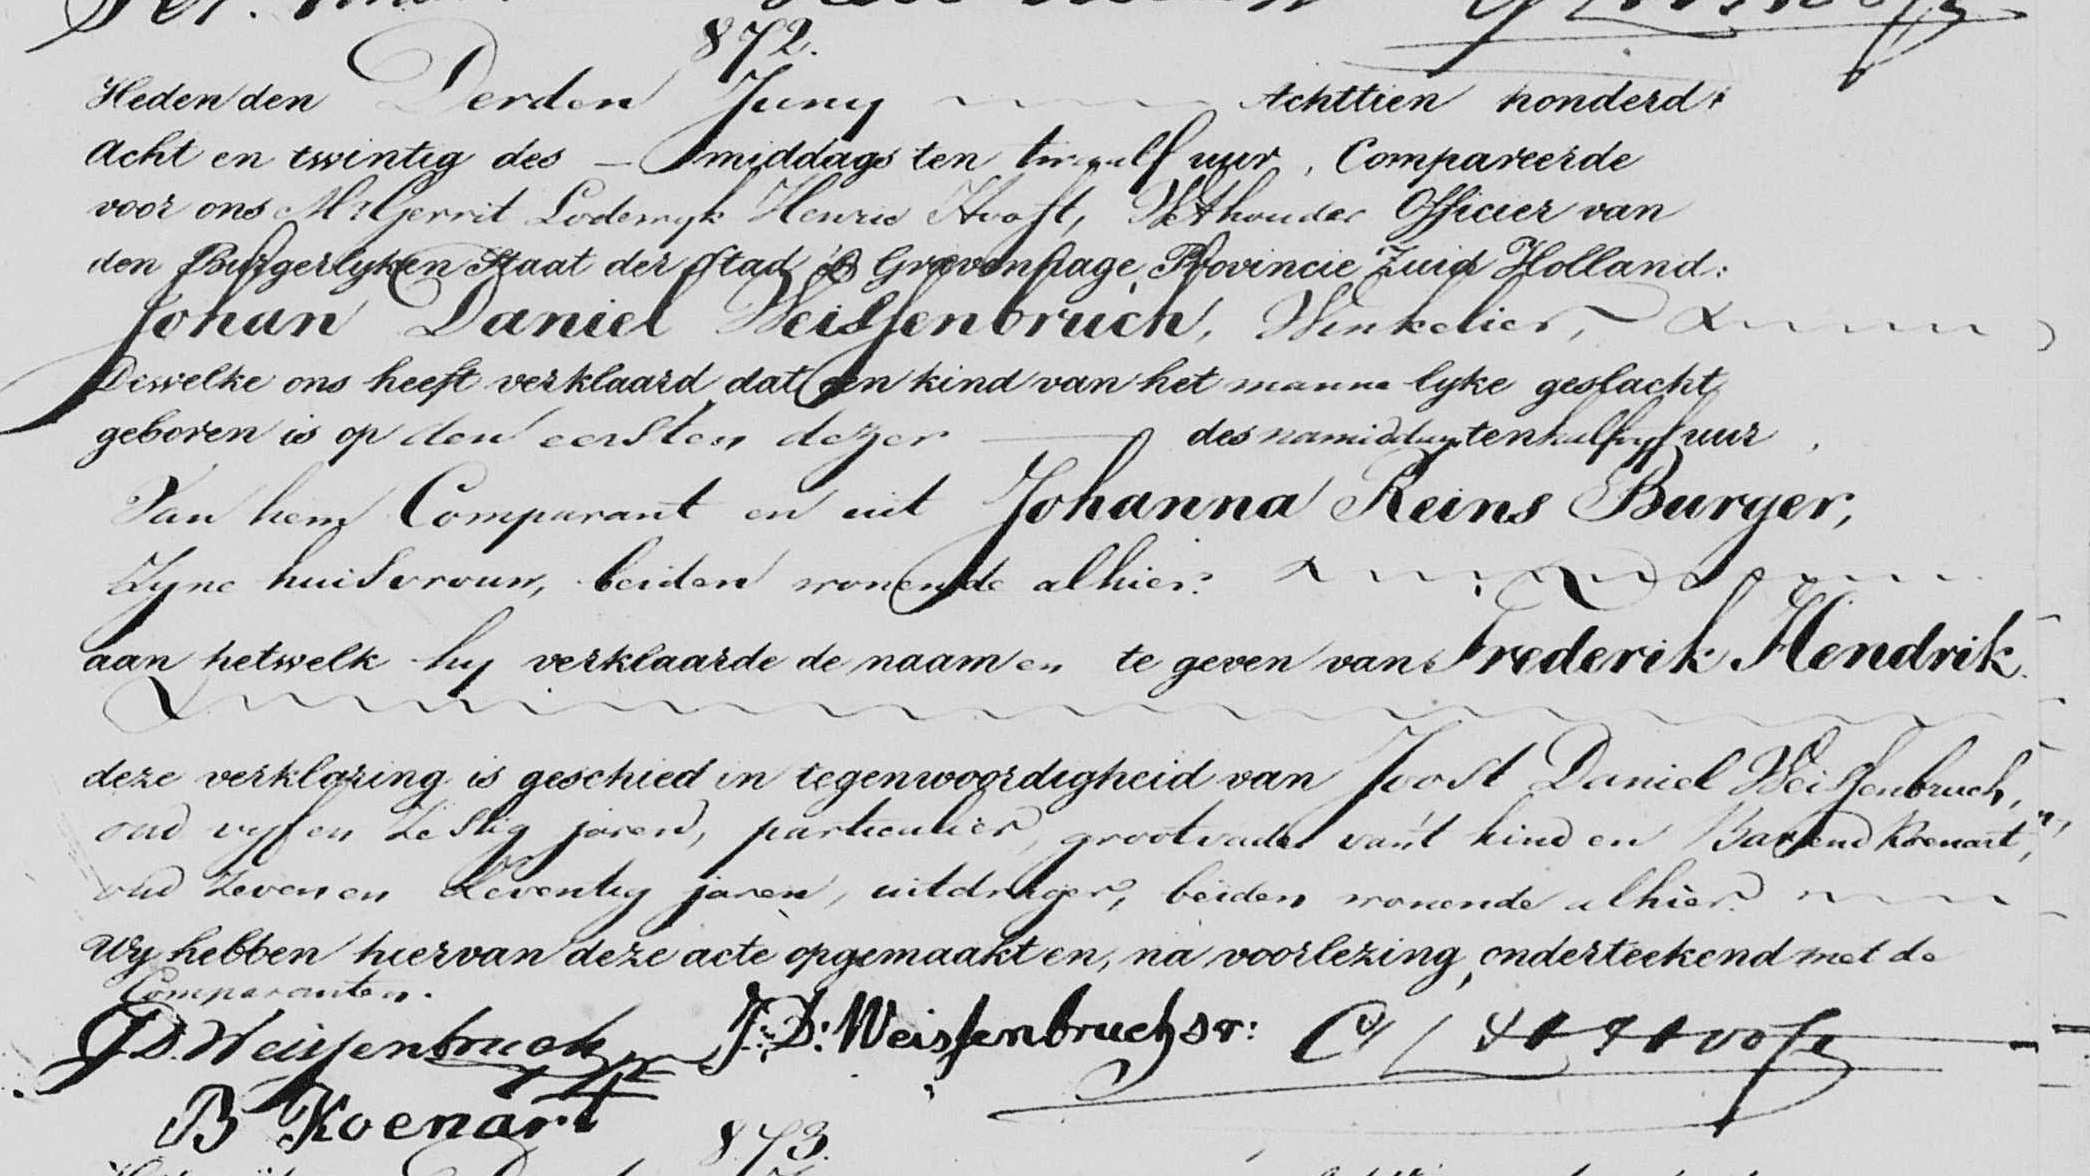 872.
Heden den Derden Juny Achttien honderd
acht en twintig des — middags ten twaalf uur, Compareerde
voor ons Mr Gerrit Lodewyk Henrie Hooft, Wethouder Officier van
den Burgerlyken Staat der Stad 's Gravenhage, Provincie Zuid Holland:
Johan Daniel Weissenbruch, Winkelier,
Dewelke ons heeft verklaard dat een kind van het mannelyke geslacht
geboren is op den eersten dezer — des namiddags ten half vyf uur,
Van hem Comparant en uit Johanna Reins Burger,
Zyne huisvrouw, beiden wonende alhier:
aan hetwelk hy verklaarde de naamen te geven van Frederik Hendrik.
deze verklaring is geschied in tegenwoordigheid van Joost Daniel Weissenbruch,
oud vyf en Zestig jaren, particulier, grootvader van't kind en Barend Koenart,
oud Zeven en Zeventig jaren, uitdrager, beiden wonende alhier.
Wy hebben hiervan deze acte opgemaakt en, na voorlezing, onderteekend met de
Comparanten.
J.D. Weissenbruch Jr J: D: Weissenbruch sr: G L H Hooft
B Koenart
873.